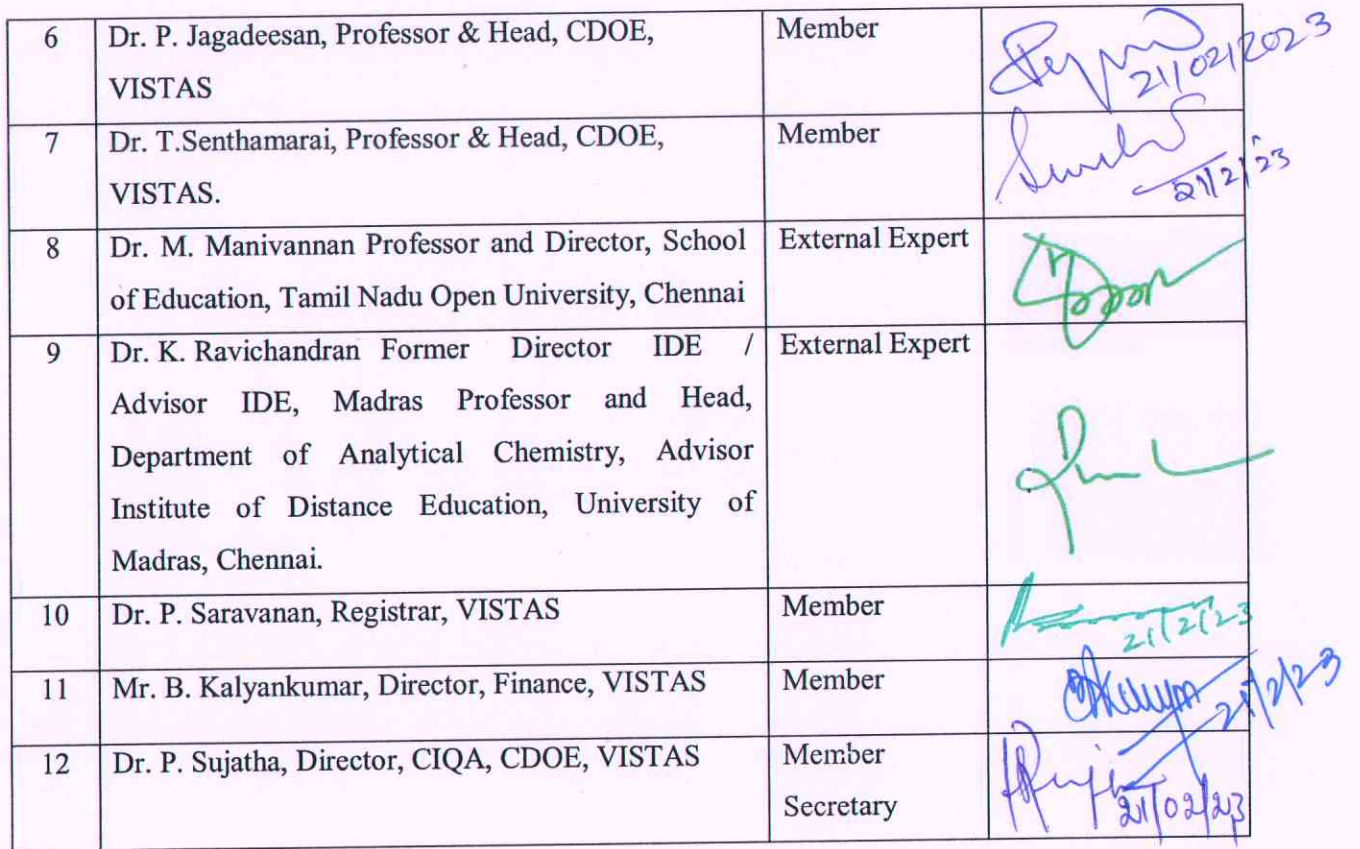 6 Dr. P. Jagadeesan, Professor & Head, CDOE, Member
VISTAS
21/02/2023
7 Dr. T.Senthamarai, Professor & Head, CDOE, Member
VISTAS.
21/2/23
8 Dr. M. Manivannan Professor and Director, School External Expert
of Education, Tamil Nadu Open University, Chennai
9 Dr. K. Ravichandran Former Director IDE / External Expert
Advisor IDE, Madras Professor and Head,
Department of Analytical Chemistry, Advisor
Institute of Distance Education, University of
Madras, Chennai.
10 Dr. P. Saravanan, Registrar, VISTAS Member
21/2/23
11 Mr. B. Kalyankumar, Director, Finance, VISTAS Member
21/2/23
12 Dr. P. Sujatha, Director, CIQA, CDOE, VISTAS Member
Secretary
21/02/23